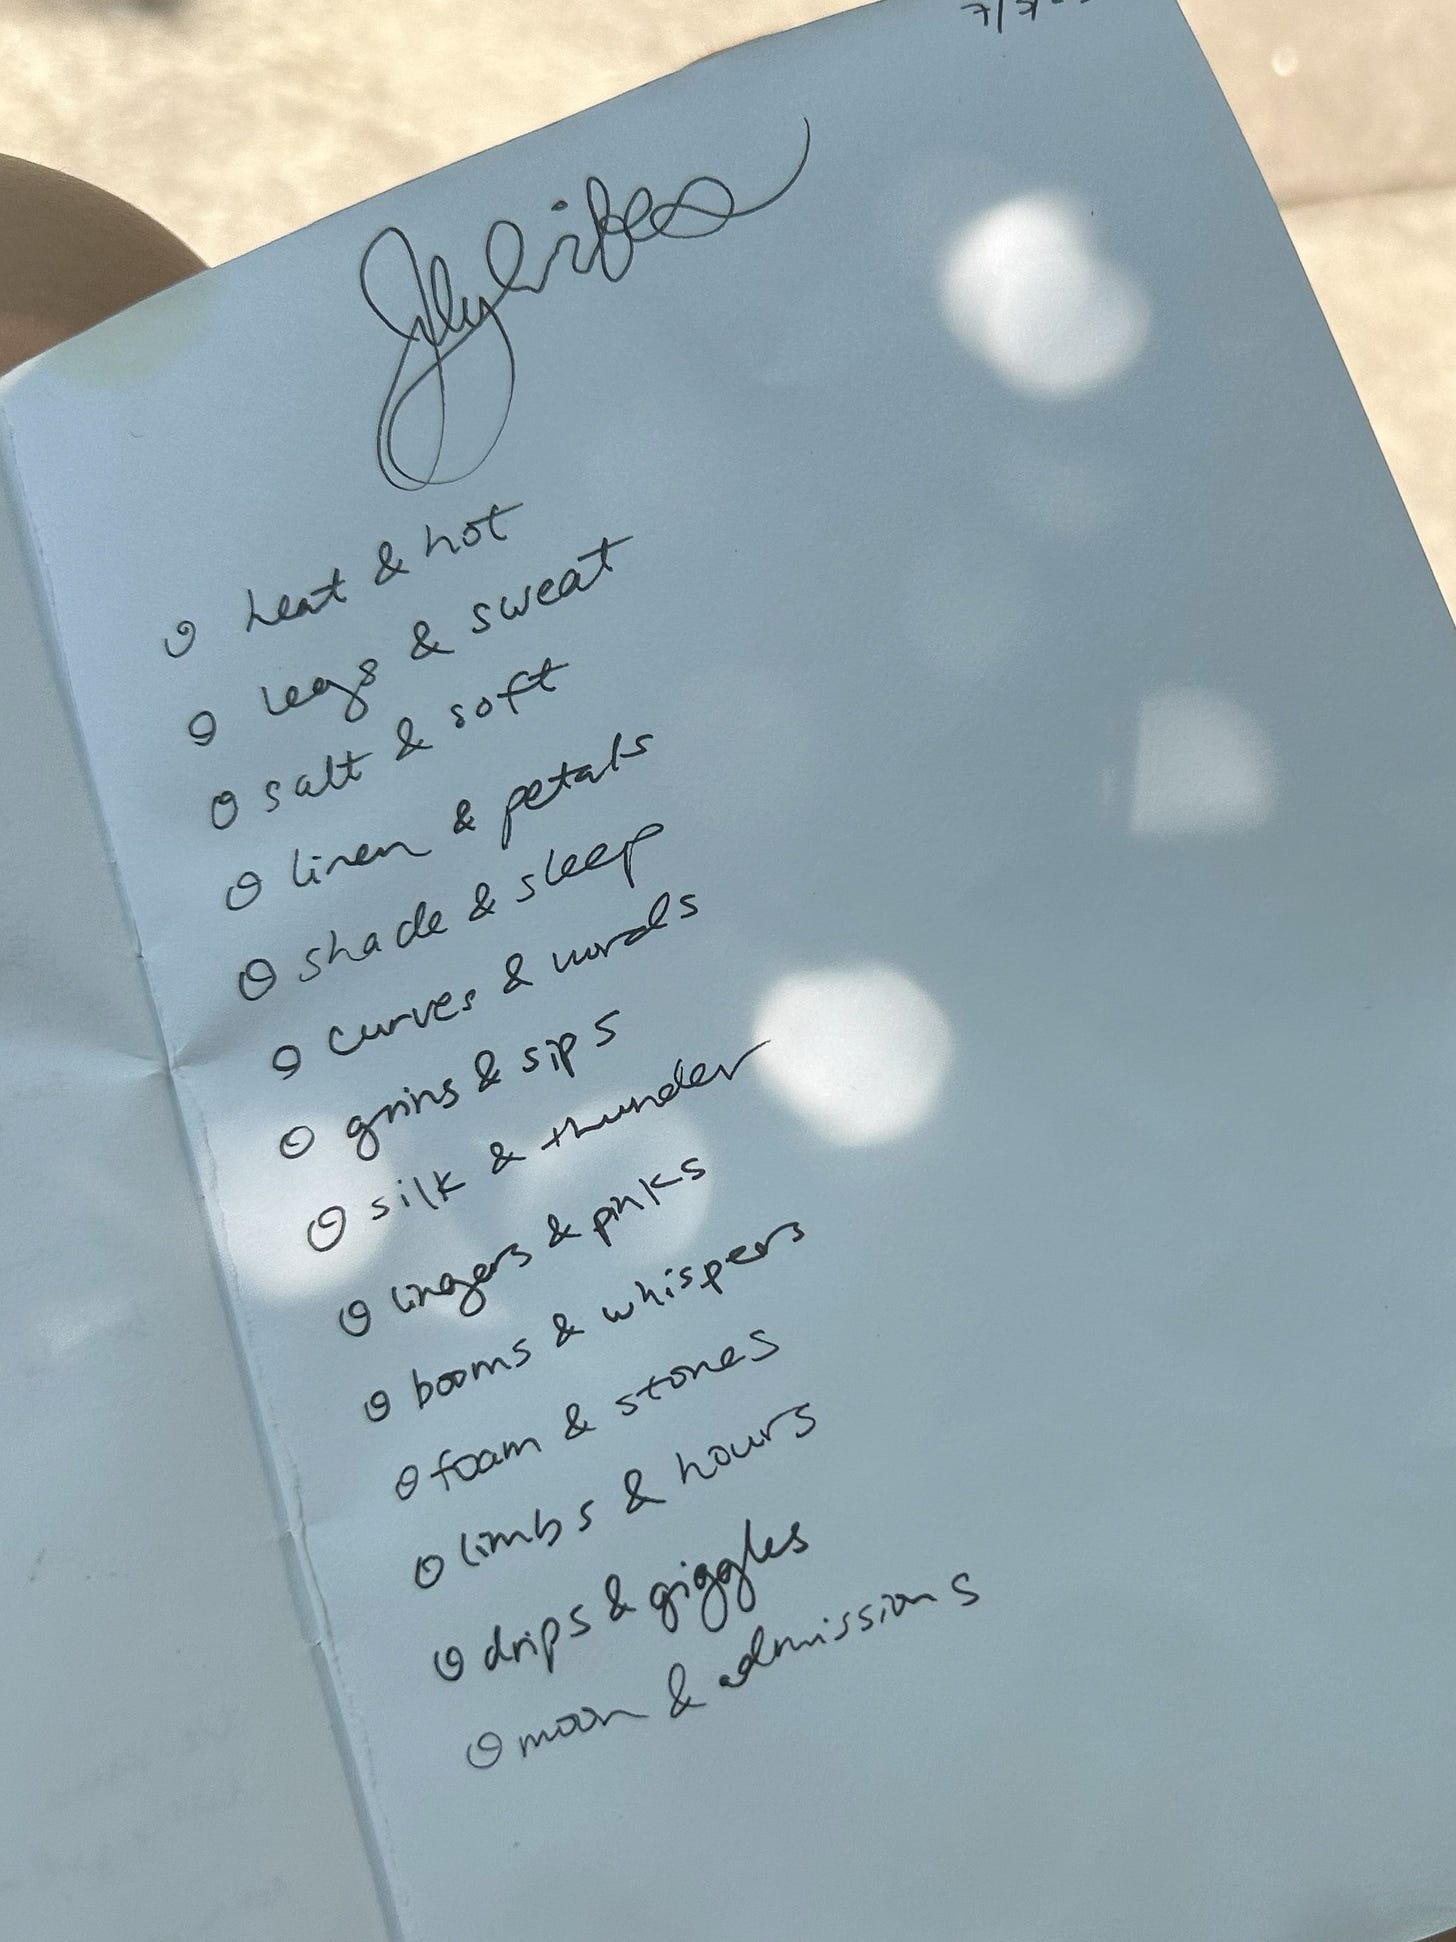 7/3/
July vibes
heat & hot
legs & sweat
salt & soft
linen & petals
shade & sleep
curves & words
grins & sips
silk & thunder
lingers & pinks
booms & whispers
foam & stones
limbs & hours
drips & giggles
moon & admissions